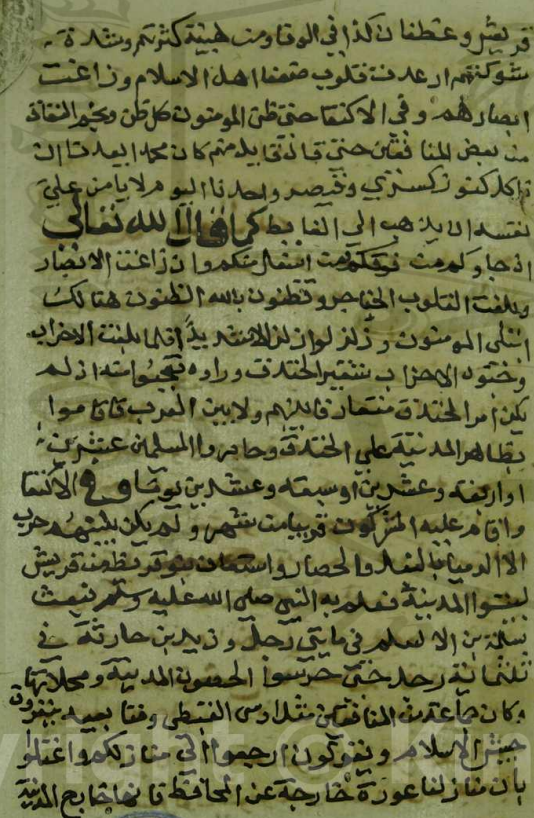 قريش وغطفان كذا في الوفا ومن هيبة كثرتهم وشدة
شوكتهم ارعدت قلوب ضعفا اهل الاسلام وزاغت
ابصارهم وفي الاكتفا حتى ظن المومنون كل ظن ونجم النفاق
من بعض المنافقين حتى قال قايل منهم كان محمد ايعدنا ان
ناكل كنوز كسري وقيصر واحدنا اليوم لا يامن علي
نفسه ان يذهب الي الغايط كما قال الله تعالى
اذ جاوكم من فوقكم ومن اسفل منكم واذ زاغت الابصار
وبلغت القلوب الحناجر وتظنون بالله الظنون هنالك
ابتلي المومنون وزلزلوا زلزالا شديدا فلما بلغت الاحزاب
وجنود الاحزاب شفير الخندق وراوه تعجبوا منه اذ لم
يكن امر الخندق متعارفا بينهم ولا بين العرب فاقاموا
بظاهر المدينة علي الخندق وحاصروا المسلمين عشرين
او اربعة وعشرين او سبعة وعشرين يوما وفي الاكتفا
واقام عليه المشركون قريبا من شهر ولم يكن بينهم حرب
الا الرميا بالنبل والحصار واستعان بنو قريظة من قريش
ليبيتوا المدينة فعلم به النبي صلى الله عليه وسلم فبعث
سلمة بن الاسلم في مايتي رجل وزيد بن حارثة في
ثلثماية رجل حتى حرسوا الحصون المدينة ومحلاتها
وكان جماعة من المنافقين مثل اوس القبطي ومتابعيه ينفرون
جيش الاسلام ويقولون ارجعوا الي منازلكم واعتلوا
بان منازلنا عورة خارجة عن المحافظة فانها خارج المدينة